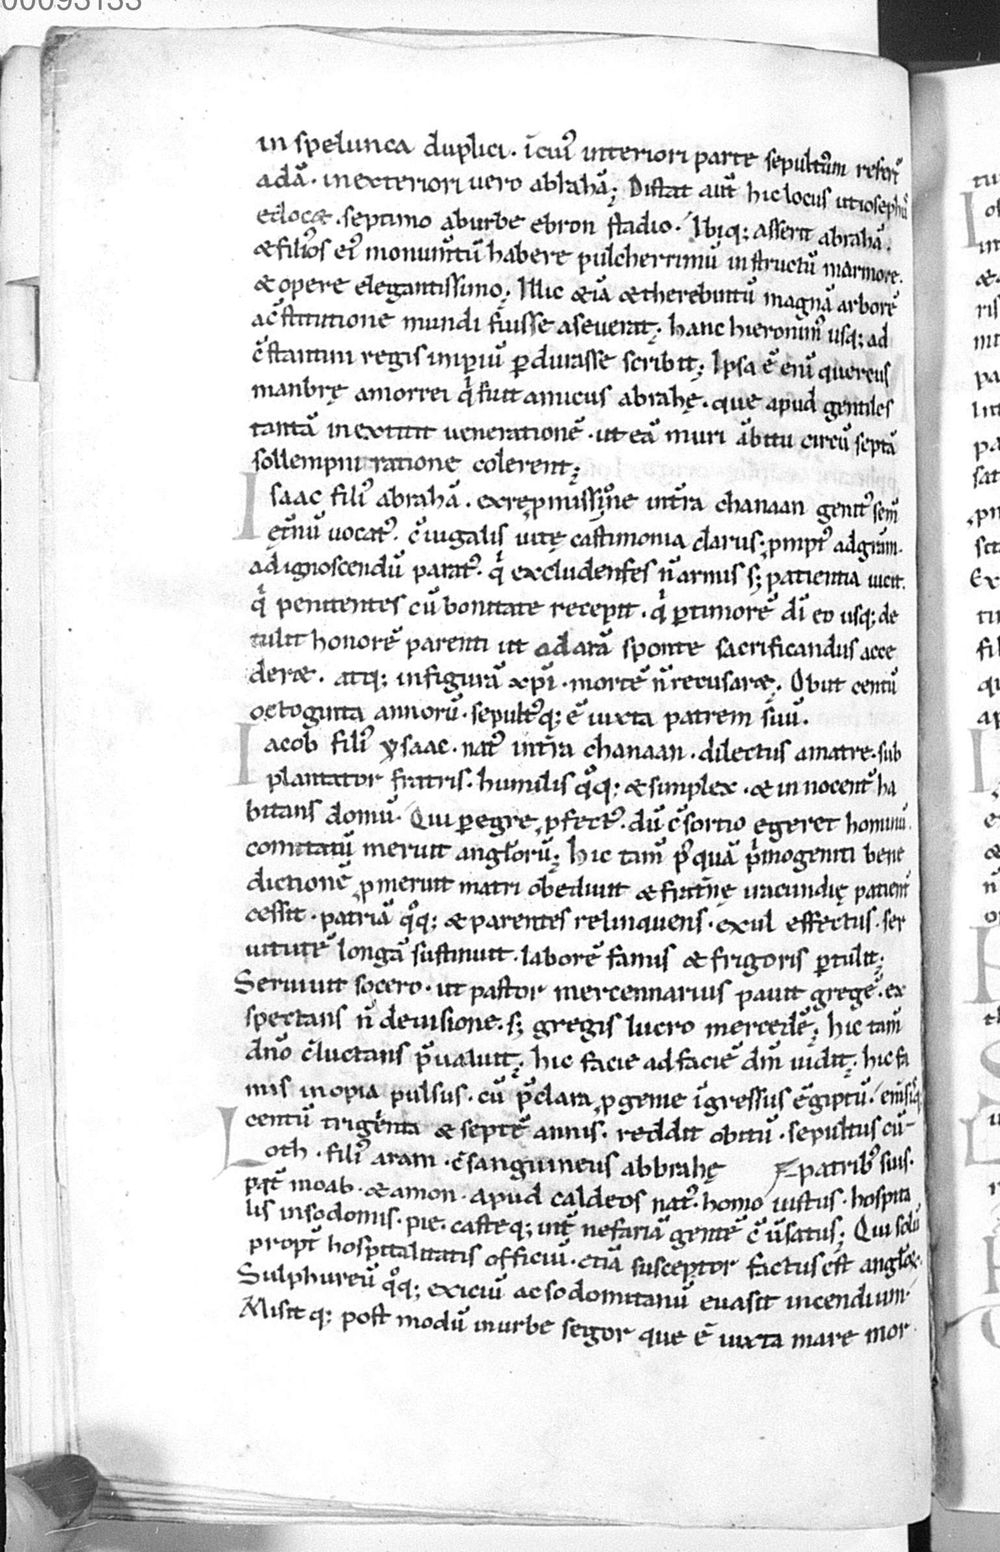 00093133
in spelunca duplici · ĩcuiꝰ interiori parte sepultum refert̃
adã · in exteriori uero abrahã; Distat aut̃ hic locus ut ioseph
edocet · septimo ab urbe ebron stadio · Ibiq; asserit abrahã ·
& filios eiꝰ monumt̃ũ habere pulcherrimũ instructũ marmore ·
& opere elegantissimo; Illic & iã & therebintũ magnã arborẽ
ac̃stitutione mundi fuisse aseuerat; hanc hieronimꝰ usq; ad
c̃stantini regis imꝑiũ ꝑdurasse scribit; Ipsa ẽ eni᷑ quercus
manbrę amorrei q̇ fuit amicus abrahę · que apud gentiles
tantã inextitit uenerationẽ · ut eã muri ãbitu circũ septã
sollempni ratione colerent;
Isaac filiꝰ abrahã · ex repromissione int̃ra chanaan genitꝰ sem̃
et̃nũ uocatꝰ · c̃iugalis uitę castimonia clarus · ꝓmptꝰ ad gr̃am ·
ad ignoscendũ paratꝰ · q̇ excludentes ñ armis s; patientia uicit ·
q̇ penitentes cũ bonitate recepit · q̇ ꝑ timorẽ di᷑ eo usq; de
tulit honorẽ parenti ut ad arã sponte sacrificandus acce
deret · atq; in figurã xp̃i · mortẽ ñ recusaret · Obiit centũ
octoginta annorũ · sepultꝰq; ẽ iuxta patrem suũ ·
Iacob filiꝰ ysaac · natꝰ int̃ra chanaan · dilectus a matre · sub
plantator fratris · humilis q̊q; & simplex · & innocent̃ ha
bitans domũ · Qui ꝑegre ꝓfectꝰ · dũ c̃sortio egeret hominũ ·
comitatũ meruit angłorũ; hic tam̃ pꝰquã p̍mogeniti bene
dictionẽ ꝓmeruit matri obediuit & frat̃ne iracundię patient̃
cessit · patriã q̊q; & parentes relinquens · exul effectus · ser
uitutẽ longã sustinuit · laborẽ famis & frigoris ꝑtulit;
Seruiuit socero · ut pastor mercennarius pauit gregẽ · ex
spectans ñ de uisione · s; gregis lucro mercedẽ; hic tam̃
dño c̃luctans p̃ualuit; hic facie ad faciẽ dm̃ uidit; hic fa
mis inopia pulsus · cũ p̃clara ꝓgenie ĩgressus ęgiptũ ·
centũ triginta & septẽ annis · reddit obitũ · sepultus cũ
patribꝰ suis ·
Loth · filiꝰ aram · c̃sanguineus abbrahę
pat̃ moab · & amon · apud caldeos natꝰ · homo iustus · hospita
lis in sodomis · pie · casteq; int̃ nefariã gentẽ c̃uersatus; Qui solũ
propt̃ hospitalitatis officiũ · etiã susceptor factus est angłoꝝ ·
Sulphureũ q̊q; exiciũ ac sodomitanũ euasit incendium ·
Misit q; post modũ in urbe segor que ẽ iuxta mare mor